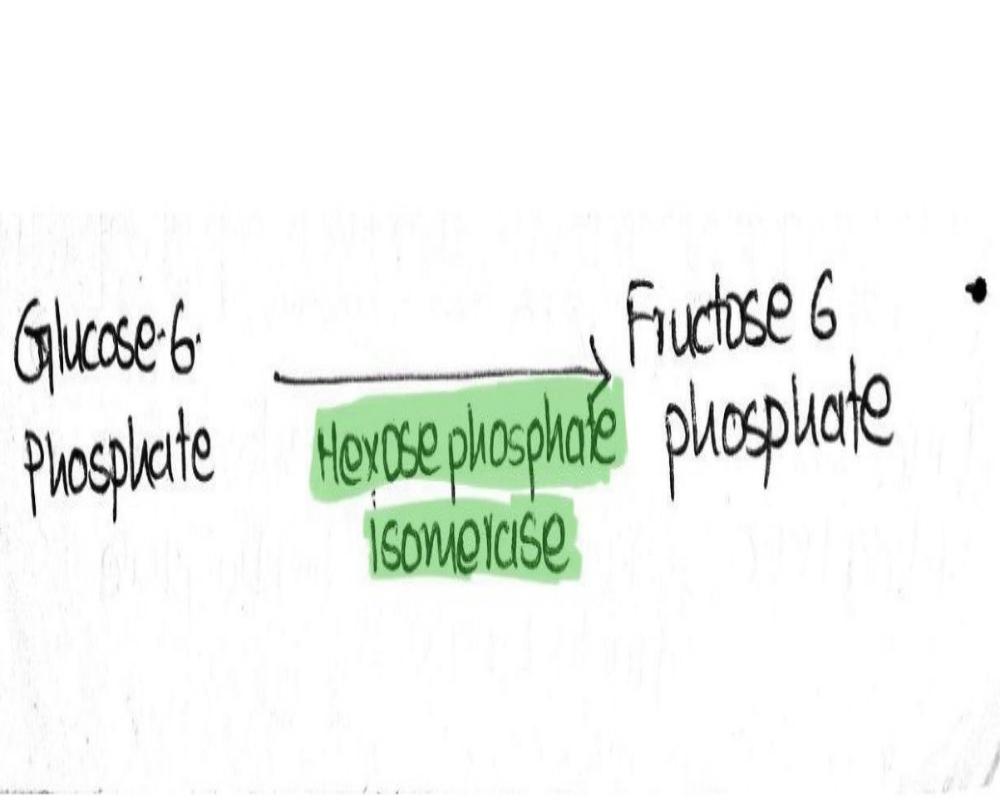 Glucose-6-
Phosphate
Hexose phosphate
isomerase
Fructose 6
phosphate